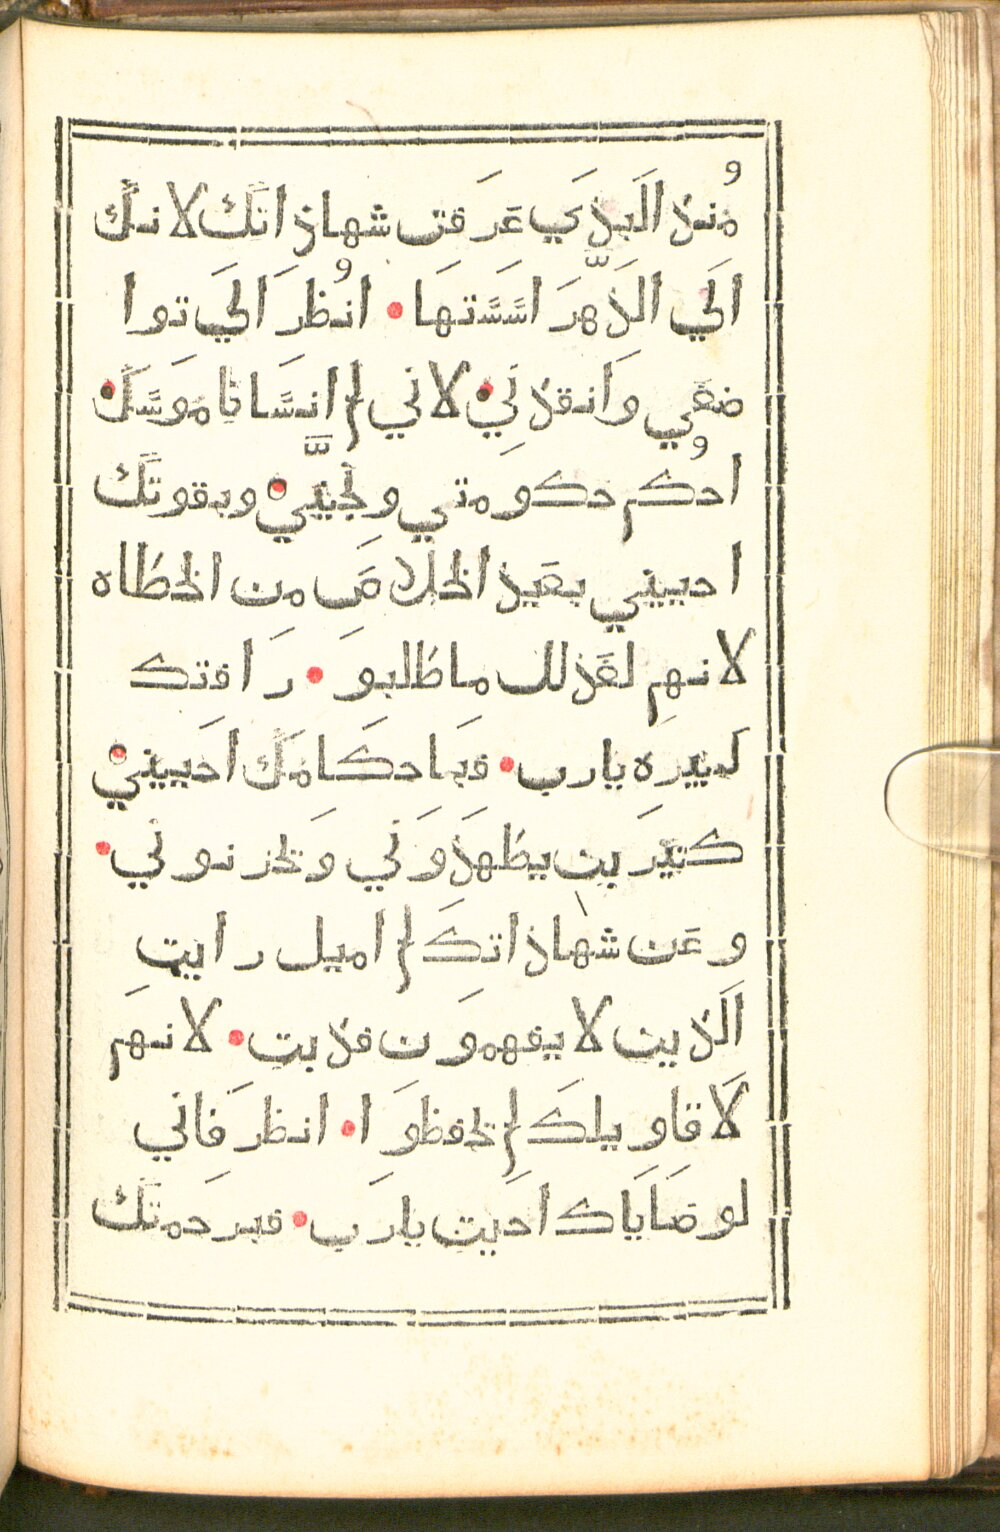 منذ البذي عرفت شهاذاتك لانك
الي الذهر اسستها • انظر الي توا
ضعي وانقذني • لاني لم انسا ناموسك •
احكم حكومتي ونجيني • وبقوتك
احييني بعيذ الخلاص من الخطاه
لانهم لعذلك ماطلبو • رافتك
كبيره يارب • فباحكامك احييني •
كتيريت يطهذوني ويحزنوني •
وعن شهاذاتك لم اميل رايت
الذين لا يفهمون فذبت • لانهم
لاقاويلك لم يحفظوا • انظر فاني
لوصاياك احبيت يارب • فبرحمتك